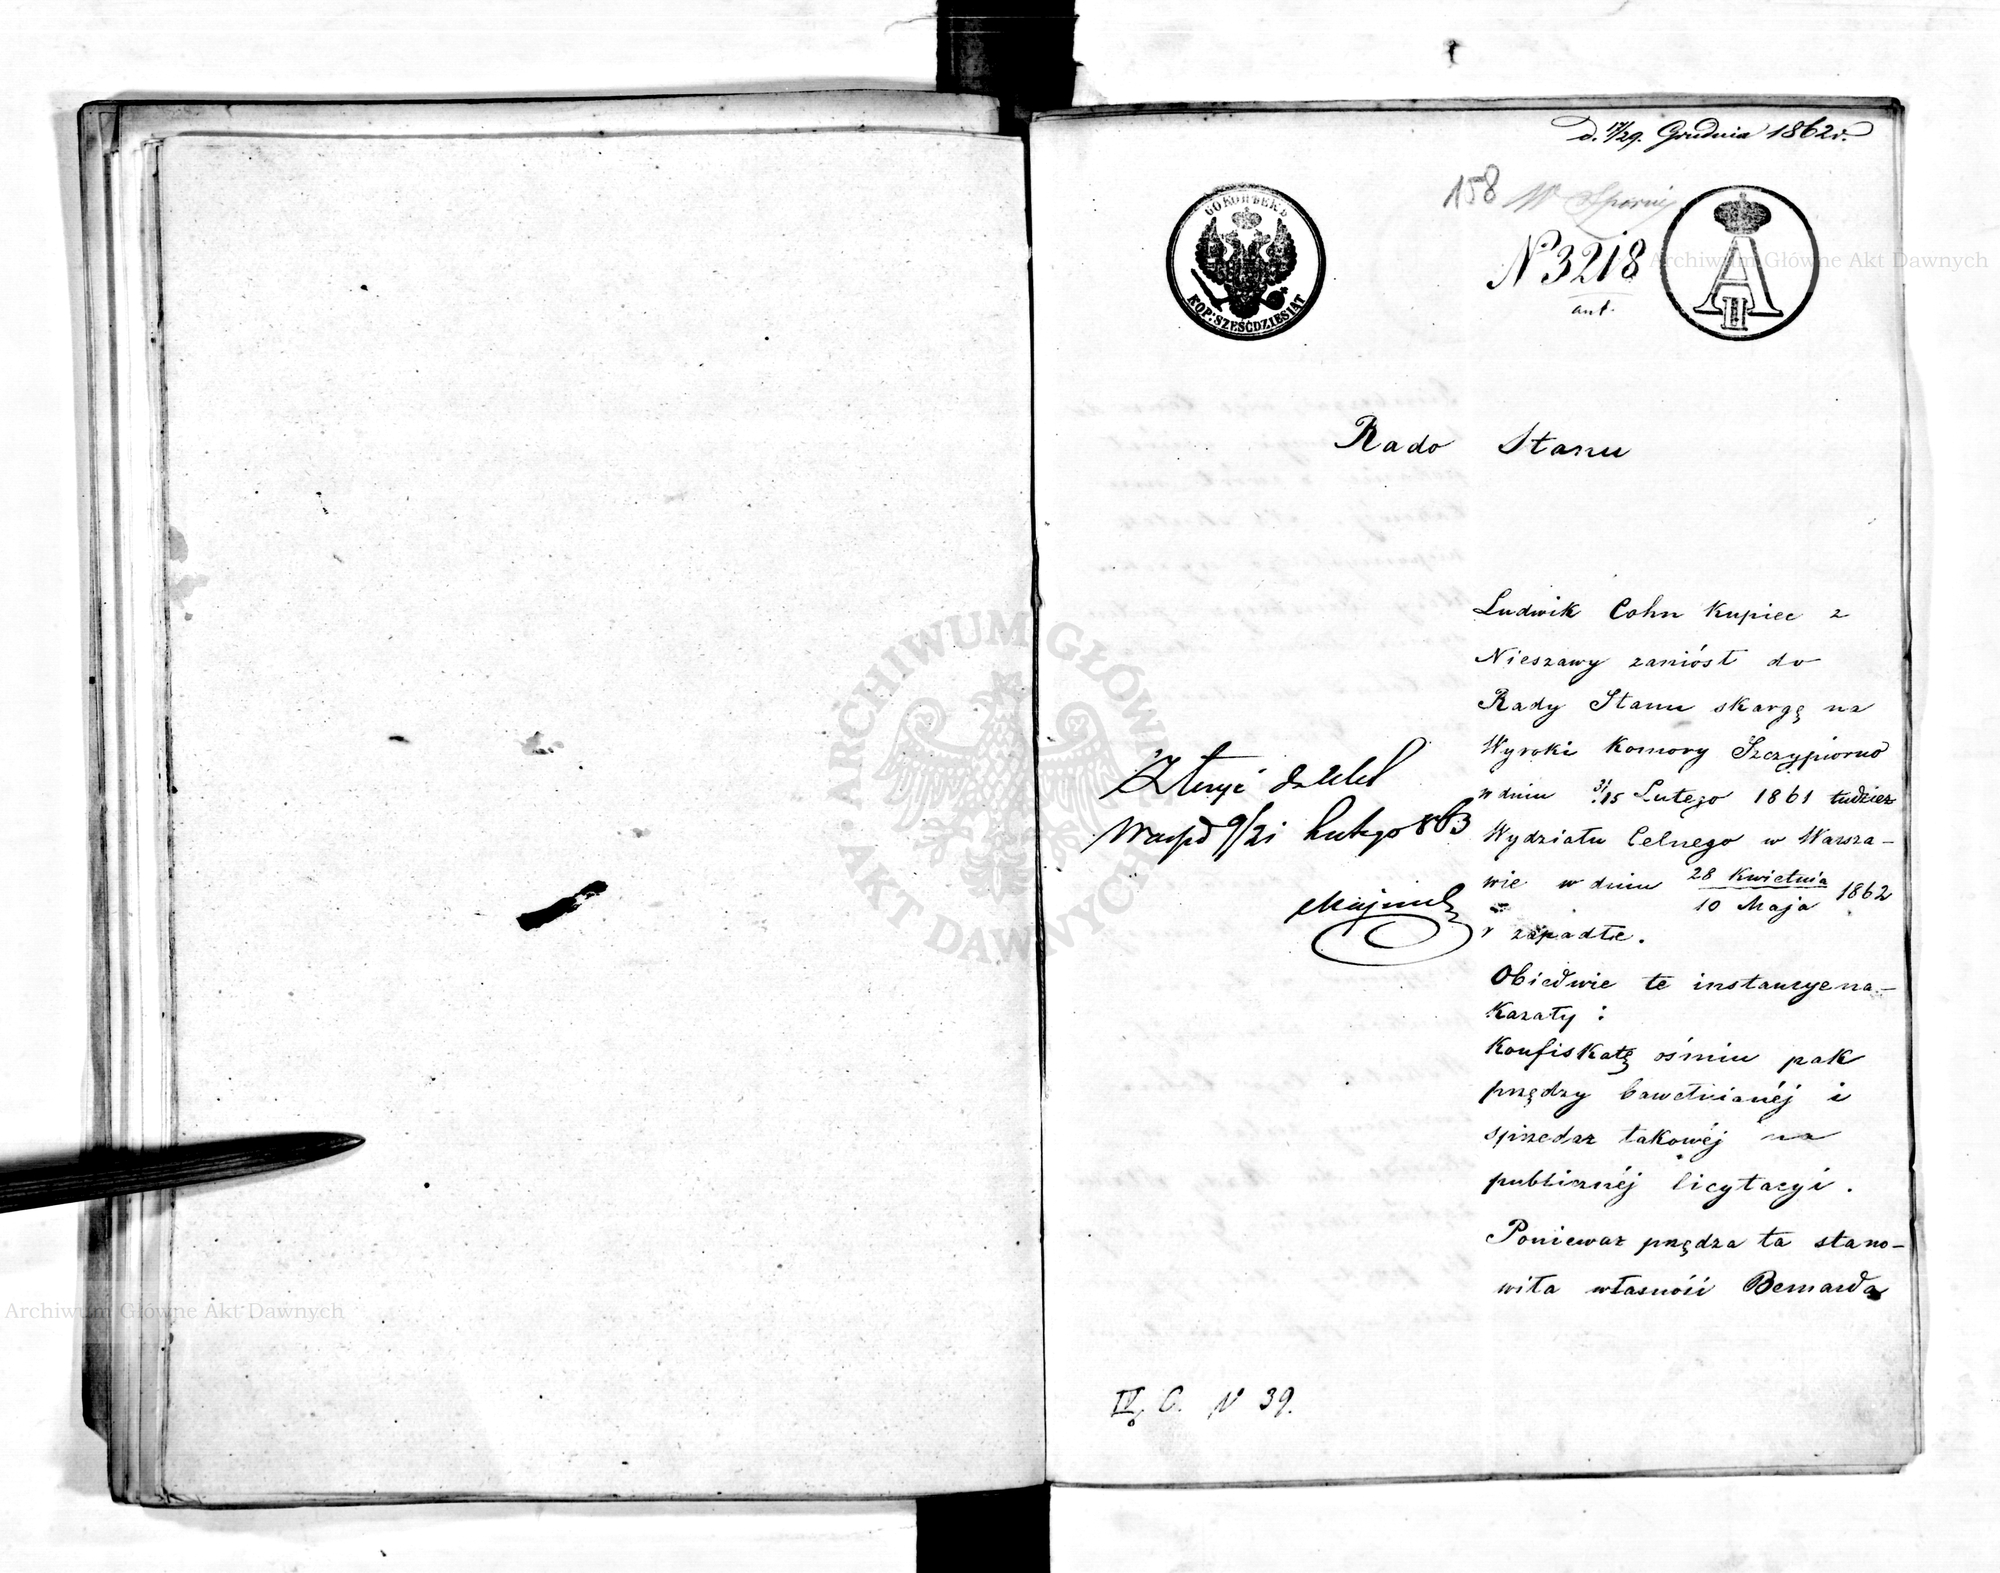 d. 17/29. Grudnia 1862 r.
158 W Spornej
60 КОПѢЕКЪ
KOP: SZEŚĆDZIESIĄT
N° 3218
ant.
A II
Archiwum Główne Akt Dawnych
Rado Stanu
Ludwik Cohn Kupiec z
Nieszawy zaniósł do
Rady Stanu skargę na
Wyroki Komory Szczypiorno
w dniu 3/15 Lutego 1861 tudzież
Wydziału Celnego w Warsza-
wie w dniu 28 Kwietnia / 10 Maja 1862
r zapadłe.
Obiedwie te instancye na-
kazały:
Konfiskatę ośmiu pak
przędzy bawełnianéj i
sprzedaż takowéj na
publicznéj licytacyi.
Ponieważ przędza ta stano-
wiła własność Bernarda
Złożyć
9/21 Lutego 863
IV, C. N 39.
ARCHIWUM GŁÓWNE
AKT DAWNYCH
Archiwum Główne Akt Dawnych